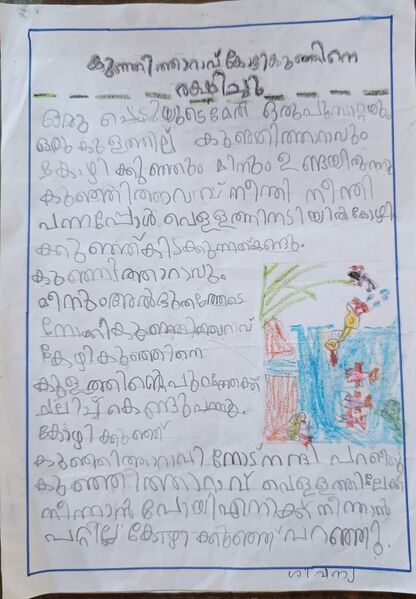 കുഞ്ഞിത്താറാവ് കോഴികുഞ്ഞിനെ
രക്ഷിച്ചു
ഒരു ചെടിയുടെമേൽ ഒരുപൂമ്പാറ്റയും
ഒരു കുളത്തില് കുഞ്ഞിത്താറാവും
കോഴി ക്കുഞ്ഞും മീനും ഉണ്ടായിരുന്നു
കുഞ്ഞിത്താറാവ് നീന്തി നീന്തി
വന്നപ്പോൾ വെള്ളത്തിനടിയിൽ കോഴി
ക്കുഞ്ഞ് കിടക്കുന്നത്കണ്ടു.
കുഞ്ഞിത്താറാവും
മീനും അൽഭുതത്തോടെ
നോക്കി കുഞ്ഞിത്താറാവ്
കോഴികുഞ്ഞിനെ
കുളത്തിന്റെപുറത്തേക്ക്
വലിച്ച് കൊണ്ടുവന്നു.
കോഴിക്കുഞ്ഞ്
കുഞ്ഞിത്താറാവിനോട് നന്ദി പറഞ്ഞു
കുഞ്ഞിത്താറാവ് വെള്ളത്തിലേക്ക്
നീന്താൻ പോയി എനിക്ക് നീന്താൻ
പറ്റില്ല കോഴിക്കുഞ്ഞ് പറഞ്ഞു.